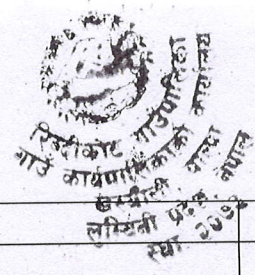 रिब्दीकोट गाउँपालिका
गाउँ कार्यपालिकाको कार्यालय
खस्यौली, पाल्पा
लुम्बिनी प्रदेश, नेपाल
स्था. २०७३